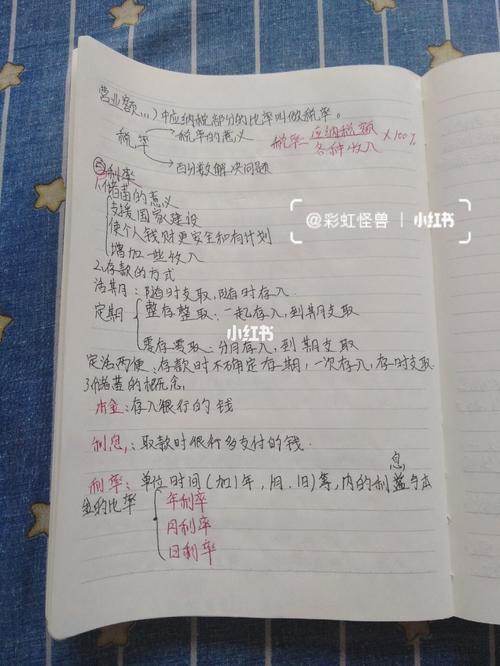 营业额...)中应纳税部分的比率叫做税率。
税率 税率的意义
税率=应纳税额/各种收入×100%
百分数解决问题
⑤利率
1、储蓄的意义
支援国家建设
使个人钱财更安全和有计划
增加一些收入
@彩虹怪兽 | 小红书
2、存款的方式
活期:随时支取,随时存入.
定期 整存整取:一起存入,到期支取
小红书
零存整取:分月存入,到期支取
定活两便:存款时不确定存期,一次存入,存时支取
3储蓄的概念:
本金:存入银行的钱
利息:取款时银行多支付的钱.
息
利率:单位时间(如1年,月,1日)等,内的利益与本
金的比率 年利率
月利率
日利率
小红书